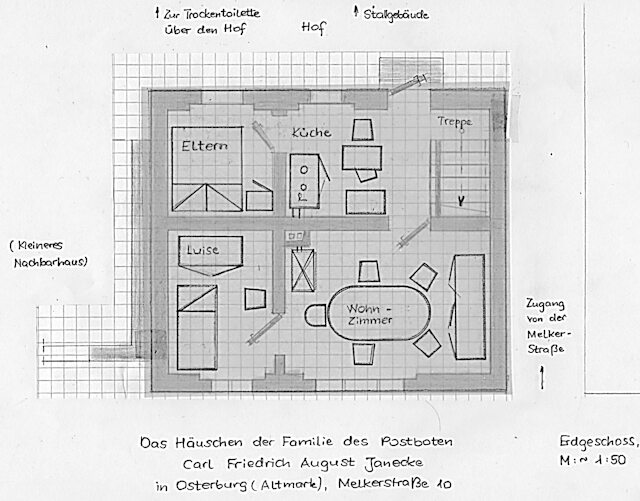 ↑ Zur Trockentoilette
über den Hof
Hof
↑ Stallgebäude
Treppe
Küche
Eltern
(Kleineres
Nachbarhaus)
Luise
Wohn-
Zimmer
Zugang
von der
Melker-
Straße
↑
Das Häuschen der Familie des Postboten
Carl Friedrich August Janecke
in Osterburg (Altmark), Melkerstraße 10
Erdgeschoss,
M: ~ 1:50